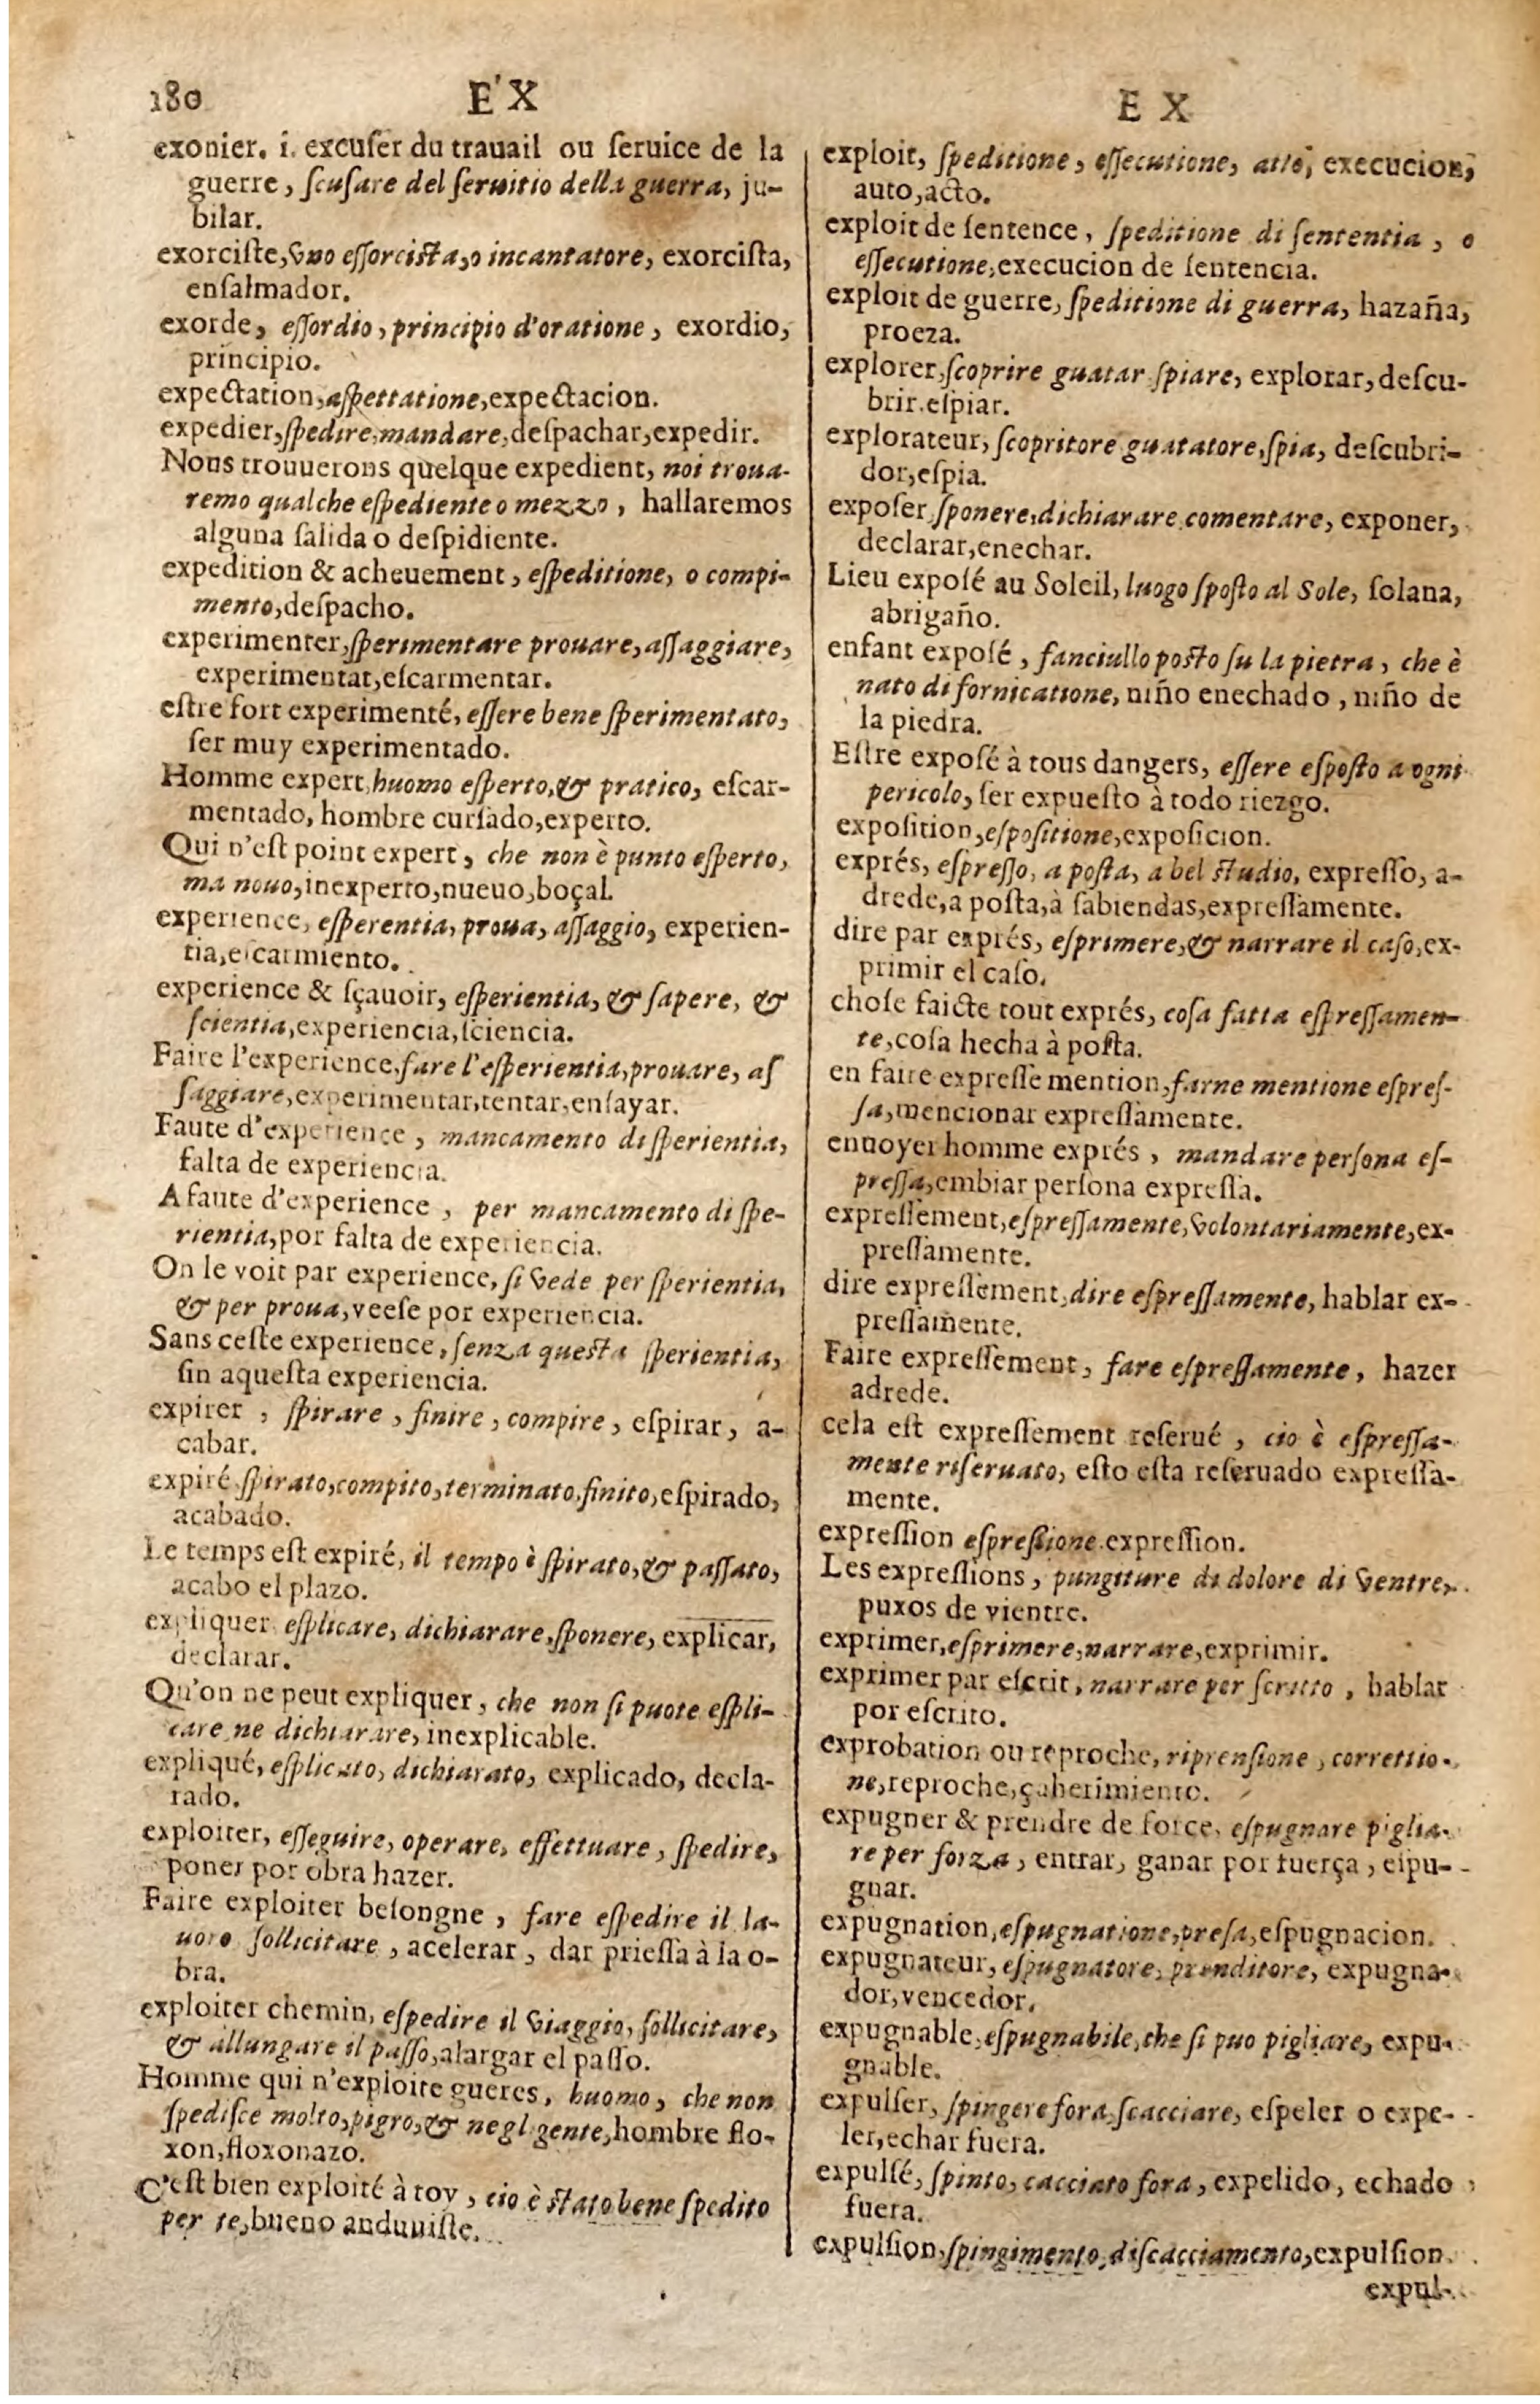 180 E'X
exonier. i. excuſer du trauail ou ſeruice de la
guerre, ſcuſare del ſeruitio della guerra, ju-
bilar.
exorciſte, vno eſſorciſta, o incantatore, exorciſta,
enſalmador.
exorde, eſſordio, principio d'oratione, exordio,
principio.
expectation, aſpettatione, expectacion.
expedier, ſpedire, mandare, deſpachar, expedir.
Nous trouuerons quelque expedient, noi troua-
remo qualche eſpediente o mezzo, hallaremos
alguna ſalida o deſpidiente.
expedition & acheuement, eſpeditione, o compi-
mento, deſpacho.
experimenter, ſperimentare prouare, aſſaggiare,
experimentar, eſcarmentar.
eſtre fort experimenté, eſſere bene ſperimentato,
ſer muy experimentado.
Homme expert, huomo eſperto, & pratico, eſcar-
mentado, hombre curſado, experto.
Qui n'eſt point expert, che non è punto eſperto,
ma nouo, inexperto, nueuo, boçal.
experience, eſperentia, proua, aſſaggio, experien-
tia, eſcarmiento.
experience & ſçauoir, eſperientia, & ſapere, &
ſcientia, experiencia, ſciencia.
Faire l'experience, fare l'eſperientia, prouare, aſ
ſaggiare, experimentar, tentar, enſayar.
Faute d'experience, mancamento di ſperientia,
falta de experiencia.
A faute d'experience, per mancamento di ſpe-
rientia, por falta de experiencia.
On le voit par experience, ſi vede per ſperientia,
& per proua, veeſe por experiencia.
Sans ceſte experience, ſenza queſta ſperientia,
ſin aqueſta experiencia.
expirer, ſpirare, finire, compire, eſpirar, a-
cabar.
expiré ſpirato, compito, terminato, finito, eſpirado,
acabado.
Le temps eſt expiré, il tempo è ſpirato, & paſſato,
acabo el plazo.
expliquer eſplicare, dichiarare, ſponere, explicar,
declarar.
Qu'on ne peut expliquer, che non ſi puote eſpli-
care ne dichiarare, inexplicable.
expliqué, eſplicato, dichiarato, explicado, decla-
rado.
exploiter, eſſeguire, operare, effettuare, ſpedire,
poner por obra hazer.
Faire exploiter beſongne, fare eſpedire il la-
uoro ſollicitare, acelerar, dar prieſſa à la o-
bra.
exploiter chemin, eſpedire il viaggio, ſollicitare,
& allungare il paſſo, alargar el paſſo.
Homme qui n'exploite gueres, huomo, che non
ſpediſce molto, pigro, & negligente, hombre flo-
xon, floxonazo.
C'eſt bien exploité à toy, cio è ſtato bene ſpedito
per te, bueno anduuiſte.
E X
exploit, ſpeditione, eſſecutione, atto, execucion,
auto, acto.
exploit de ſentence, ſpeditione di ſententia, o
eſſecutione, execucion de ſentencia.
exploit de guerre, ſpeditione di guerra, hazaña,
proeza.
explorer, ſcoprire guatar ſpiare, explorar, deſcu-
brir, eſpiar.
explorateur, ſcopritore guatatore, ſpia, deſcubri-
dor, eſpia.
expoſer ſponere, dichiarare comentare, exponer,
declarar, enechar.
Lieu expoſé au Soleil, luogo ſpoſto al Sole, ſolana,
abrigaño.
enfant expoſé, fanciullo poſto ſu la pietra, che è
nato di fornicatione, niño enechado, niño de
la piedra.
Eſtre expoſé à tous dangers, eſſere eſpoſto a ogni
pericolo, ſer expueſto à todo riezgo.
expoſition, eſpoſitione, expoſicion.
exprés, eſpreſſo, a poſta, a bel ſtudio, expreſſo, a-
drede, a poſta, à ſabiendas, expreſſamente.
dire par exprés, eſprimere, & narrare il caſo, ex-
primir el caſo.
choſe faicte tout exprés, coſa fatta eſpreſſamen-
te, coſa hecha à poſta.
en faire expreſſe mention, farne mentione eſpreſ-
ſa, mencionar expreſſamente.
enuoyer homme exprés, mandare perſona eſ-
preſſa, embiar perſona expreſſa.
expreſſement, eſpreſſamente, volontariamente, ex-
preſſamente.
dire expreſſement, dire eſpreſſamente, hablar ex-
preſſamente.
Faire expreſſement, fare eſpreſſamente, hazer
adrede.
cela eſt expreſſement reſerué, cio è eſpreſſa-
mente riſeruato, eſto eſta reſeruado expreſſa-
mente.
expreſſion eſpreſſione expreſſion.
Les expreſſions, pungiture di dolore di ventre,
puxos de vientre.
exprimer, eſprimere, narrare, exprimir.
exprimer par eſcrit, narrare per ſcritto, hablar
por eſcrito.
exprobation ou reproche, riprenſione, correttio-
ne, reproche, çaherimiento.
expugner & prendre de force, eſpugnare piglia-
re per forza, entrar, ganar por fuerça, eſpu-
gnar.
expugnation, eſpugnatione, preſa, eſpugnacion.
expugnateur, eſpugnatore, prenditore, expugna-
dor, vencedor.
expugnable, eſpugnabile, che ſi puo pigliare, expu-
gnable.
expulſer, ſpingere fora, ſcacciare, eſpeler o expe-
ler, echar fuera.
expulſé, ſpinto, cacciato fora, expelido, echado
fuera.
expulſion, ſpingimento, diſcacciamento, expulſion.
expul-